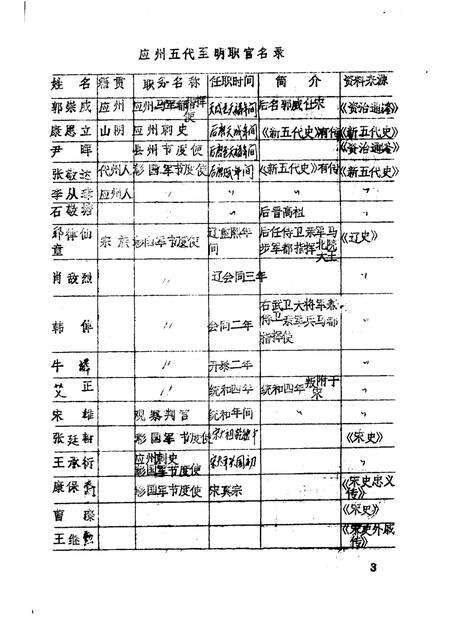 应州五代至明职官名录
姓名 籍贯 职务名称 任职时间 简介 资料来源
郭崇威 应州 应州马军都指挥使 后名郭威仕宋 《资治通鉴》
康思立 山阴 应州刺史 《新五代史》有传 《新五代史》
尹晖 县州节度使 《资治通鉴》
张敬达 代州人 彰国军节度使 《新五代史》有传 《新五代史》
李从璋 应州人 〃 〃 〃 〃
石敬瑭 〃 〃 后晋高祖 〃
耶律仙童 宗族 彰国军节度使 年间 后任侍卫亲军马步军都指挥 北院大王 《辽史》
肖敌烈 〃 辽会同三年 〃
韩倬 〃 会同二年 右武卫大将军 侍卫亲军兵马都指挥使 〃
牛璘 〃 开泰二年 〃
艾正 〃 统和四年 统和四年叛附于宋 〃
宋雄 观察判官 统和年间 〃 〃
张廷翰 彰国军节度使 《宋史》
王承衍 应州刺史 彰国军节度使 〃
康保裔 彰国军节度使 宋真宗 《宋史忠义传》
曹璨 《宋史》
王继勋 《宋史外戚传》
3